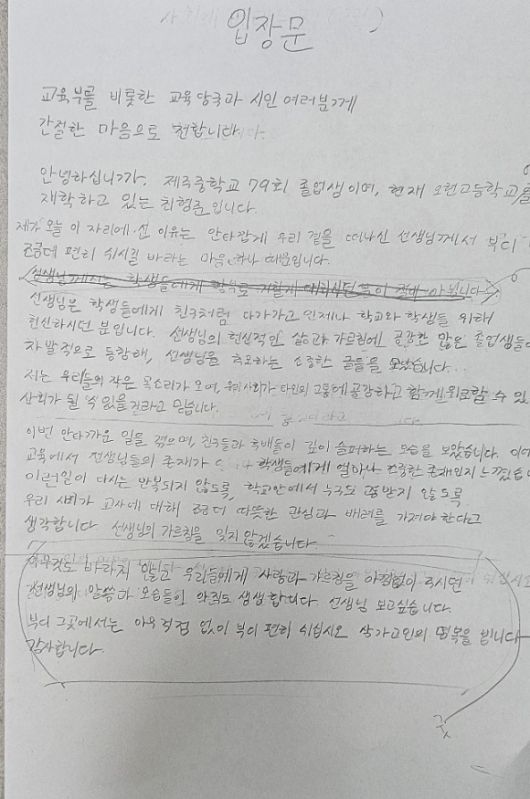 입장문
교육부를 비롯한 교육 당국과 시민 여러분께
간절한 마음으로 전합니다.
안녕하십니까. 제주중학교 79회 졸업생이며, 현재 오현고등학교를
재학하고 있는 최형준입니다.
제가 오늘 이 자리에 선 이유는 안타깝게 우리 곁을 떠나신 선생님께서 부디
조금더 편히 쉬시길 바라는 마음 하나 때문입니다.
선생님께서는 학생들에게 함부로 대하시던 분이 절대 아닙니다.
선생님은 학생들에게 친구처럼 다가가고 언제나 학교와 학생들을 위해
헌신하시던 분입니다. 선생님의 헌신적인 삶과 가르침에 공감한 많은 졸업생들이
자발적으로 동참해, 선생님을 추모하는 소중한 글들을 모았습니다...
저는 우리들의 작은 목소리가 모여, 우리 사회가 타인의 고통에 공감하고 함께 위로할 수 있는
사회가 될 수 있을 것라고 믿습니다.
이번 안타까운 일을 겪으며, 친구들과 후배들이 깊이 슬퍼하는 모습을 보았습니다.
교육에서 선생님들의 존재가 학생들에게 얼마나 소중한 존재인지 느꼈습니
이런일이 다시는 반복되지 않도록, 학교안에서 누구도 고통받지 않도록
우리 사회가 교사에 대해 조금더 따뜻한 관심과 배려를 가져야 한다고
생각합니다 선생님의 가르침을 잊지 않겠습니다
아무것도 바라지 않고 우리들에게 사랑과 가르침을 아낌없이 주시던
선생님의 말씀과 모습들이 아직도 생생합니다. 선생님 보고싶습니다.
부디 그곳에서는 아무 걱정 없이 부디 편히 쉬십시오 삼가고인의 명복을 빕니다
감사합니다.